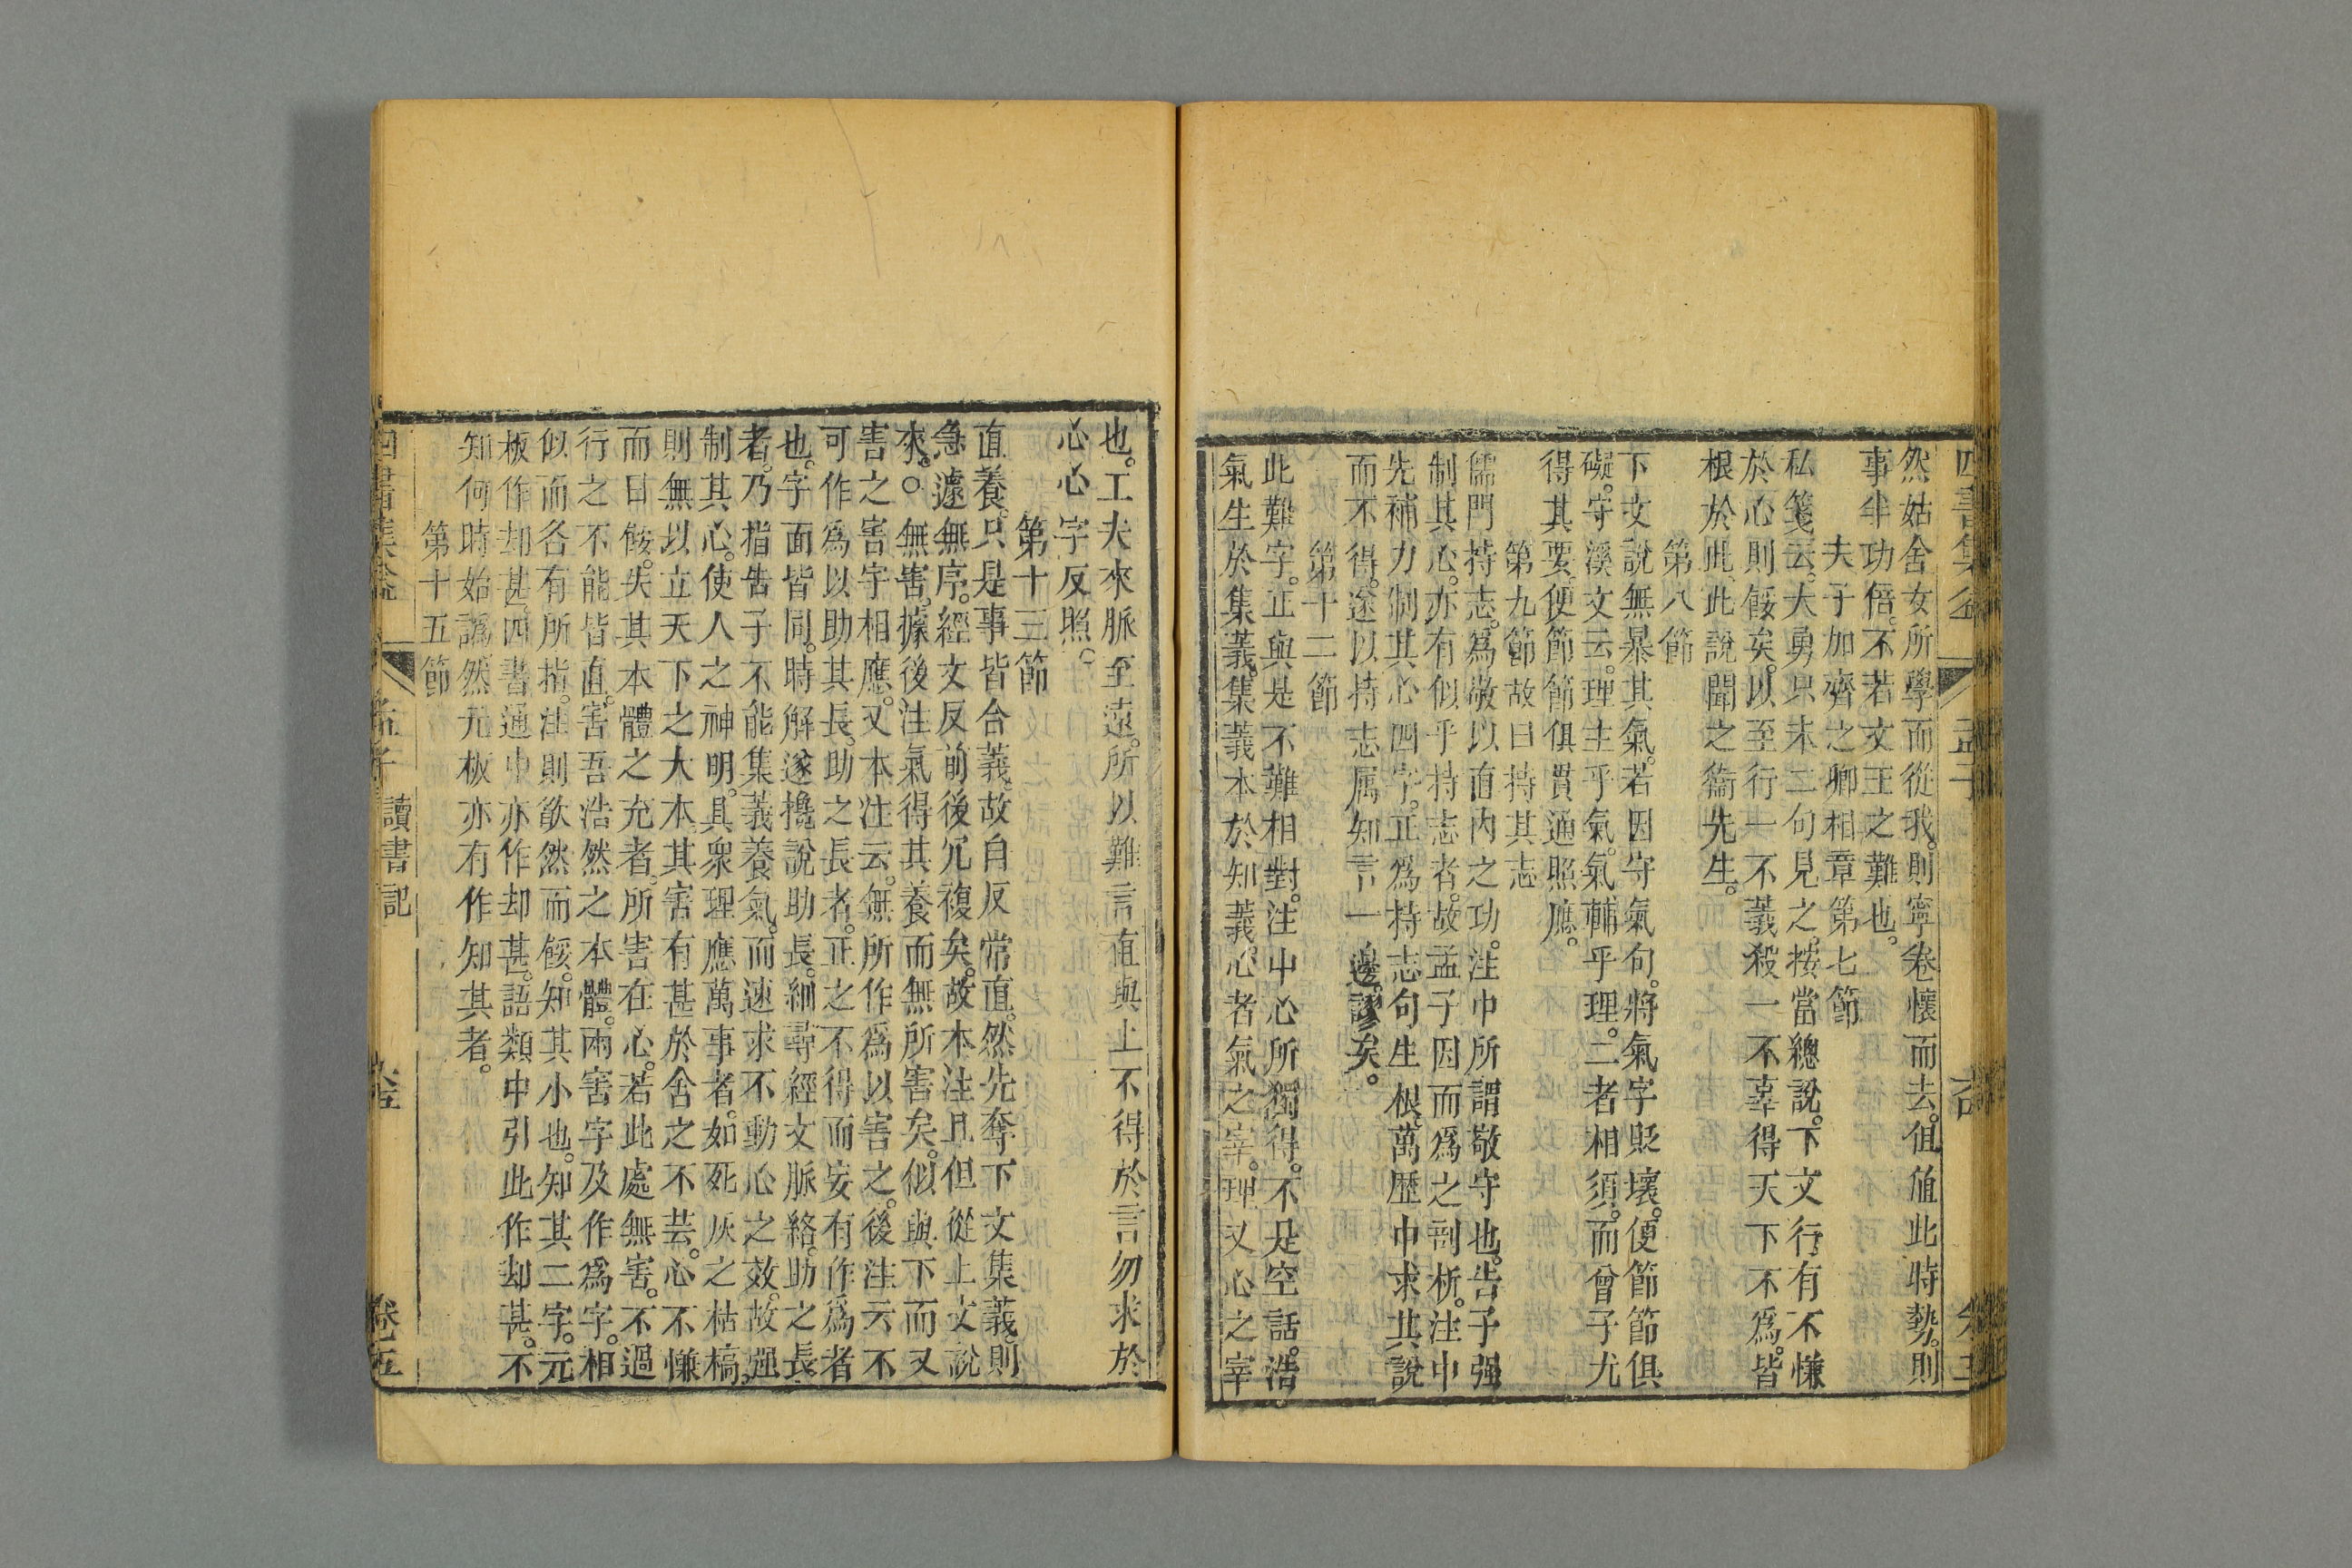 然姑舍女所學而從我則寧卷懷而去。值此時勢。則
事半功倍。不若文王之難也。
夫子加齊之卿相章第七節
私箋云。大勇只末二句見之。按當總說。下文行有不慊
於心則餒矣。以至行一不義殺一不辜得天下不為。皆
根於此。此說聞之衞先生。
第八節
下文說無暴其氣。若因守氣句。將氣字貶壞。便節節俱
礙。守溪文云。理主乎氣。氣輔乎理。二者相須。而曾子尤
得其要。便節節俱貫通照應。
第九節故曰持其志
儒門持志。為敬以直內之功。注中所謂敬守也。告子强
制其心。亦有似乎持志者。故孟子因而為之剖析。注中
先補力制其心四字。正為持志句生根。萬歷中求其說
而不得。遂以持志屬知言一邊。謬矣。
第十二節
此難字。正與是不難相對。注中心所獨得。不是空話。浩
氣生於集義。集義本於知義。心者氣之宰。理又心之宰
也。工夫來脈至遠。所以難言直與上不得於言勿求於
心心字反照。
第十三節
直養。只是事皆合義。故自反常直。然先奪下文集義。則
急遽無序。經文反前後冗複矣。故本注且但從上文說
來。○無害。據後注氣得其養而無所害矣。似與下而又
害之害字相應。又本注云。無所作為以害之。後注云不
可作為以助其長。助之長者。正之不得而妄有作為者
也。字面皆同。時解遂攙說助長。細尋經文脈絡。助之長
者。乃指告子不能集義養氣。而速求不動心之效。故强
制其心。使人之神明。具衆理應萬事者。如死灰之枯槁。
則無以立天下之大本。其害有甚於舍之不芸。心不慊
而曰餒。失其本體之充者。所害在心。若此處無害。不過
行之不能皆直。害吾浩然之本體。兩害字及作為字。相
似而各有所指。注則欿然而餒。知其小也。知其二字。元
板作却甚。四書通中亦作却甚。語類中引此作却甚。不
知何時始譌。然元板亦有作知其者。
第十五節
四書集
孟子
讀書記
卷五